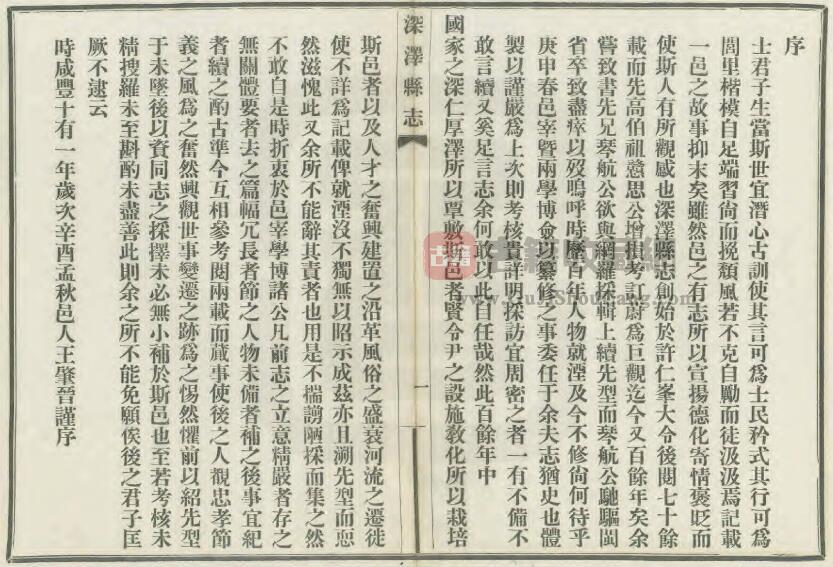 序
士君子生當斯世宜潛心古訓使其言可爲士民矜式其行可爲
閭里楷模自足端習尙而挽頽風若不克自勵而徒汲汲焉記載
一邑之故事抑末矣雖然邑之有志所以宣揚德化寄情褒貶而
使斯人有所觀感也深澤縣志創始於許仁峯大令後閱七十餘
載而先高伯祖憩思公增損考訂蔚爲巨觀迄今又百餘年矣余
嘗致書先兄琴航公欲與網羅採輯上續先型而琴航公馳驅閩
省卒致盡瘁以歿嗚呼時歷百年人物就湮及今不修尙何待乎
庚申春邑宰曁兩學博僉以纂修之事委任于余夫志猶史也體
製以謹嚴爲上次則考核貴詳明採訪宜周密之者一有不備不
敢言續又奚足言志余何敢以此自任哉然此百餘年中
國家之深仁厚澤所以覃敷斯邑者賢令尹之設施敎化所以栽培
深澤縣志
一
斯邑者以及人才之奮興建置之沿革風俗之盛衰河流之遷徙
使不詳爲記載俾就湮沒不獨無以昭示成茲亦且溯先型而恧
然滋愧此又余所不能辭其責者也用是不揣謭陋採而集之然
不敢自是時折衷於邑宰學博諸公凡前志之立意精嚴者存之
無關體要者去之篇幅冗長者節之人物未備者補之後事宜紀
者續之酌古準今互相參考閱兩載而蕆事使後之人覩忠孝節
義之風爲之奮然興觀世事變遷之跡爲之惕然懼前以紹先型
于未墜後以資同志之採擇未必無小補於斯邑也至若考核未
精搜羅未至斟酌未盡善此則余之所不能免願俟後之君子匡
厥不逮云
時咸豐十有一年歲次辛酉孟秋邑人王肇晉謹序